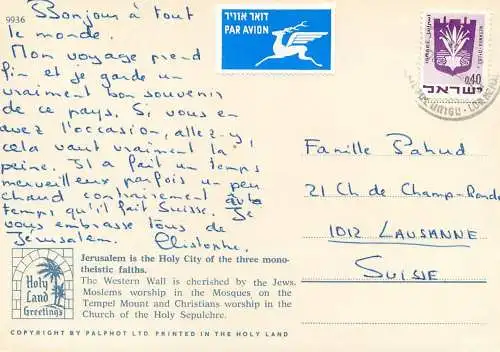 9936
Bonjour à tout
le monde.
Mon voyage prend
fin et je garde un
vraiment bon souvenir
de ce pays. Si vous en
avez l'occasion, allez-y,
cela vaut vraiment la
peine. Il a fait un temps
merveilleux parfois un peu
chaud contrairement au
temps qu'il fait Suisse. Je
vous embrasse tous de
Jérusalem. Christophe.
דואר אוויר
PAR AVION
0.40
ישראל
ISRAEL
Famille Pahud
21 Ch de Champ-Rond
1012 LAUSANNE
SUISSE
Holy
Land
Greetings
Jerusalem is the Holy City of the three mono-
theistic faiths.
The Western Wall is cherished by the Jews,
Moslems worship in the Mosques on the
Tempel Mount and Christians worship in the
Church of the Holy Sepulchre.
COPYRIGHT BY PALPHOT LTD. PRINTED IN THE HOLY LAND